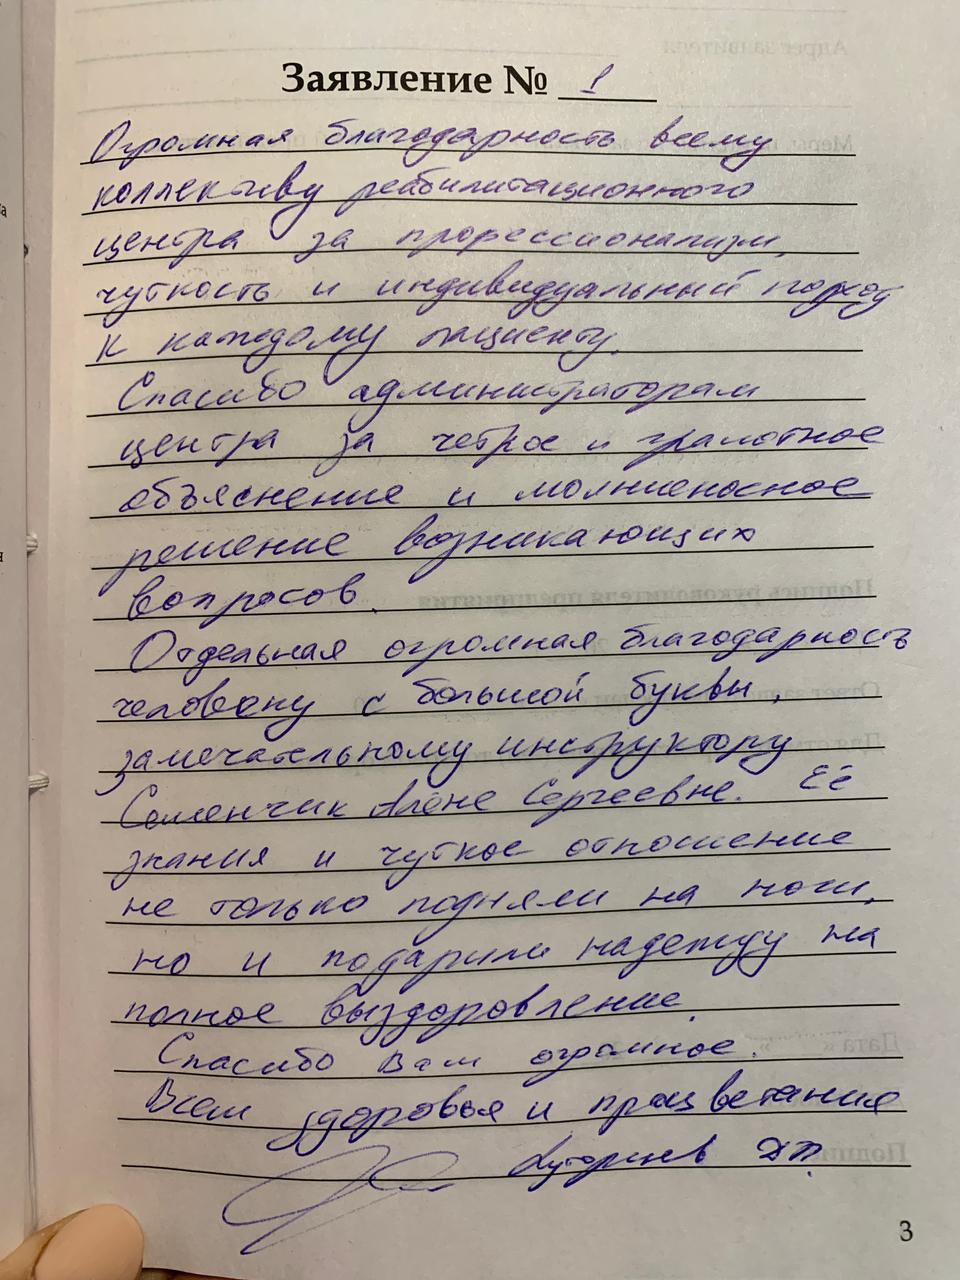 Заявление № 1
Огромная благодарность всему
коллективу реабилитационного
центра за профессионализм,
чуткость и индивидуальный подход
к каждому пациенту.
Спасибо администраторам
центра за четкое и грамотное
объяснение и молниеносное
решение возникающих
вопросов.
Отдельная огромная благодарность
человеку с большой буквы,
замечательному инструктору
Алёне Сергеевне. Её
знания и чуткое отношение
не только подняли на ноги,
но и подарили надежду на
полное выздоровление.
Спасибо Вам огромное.
Всем здоровья и процветания
3